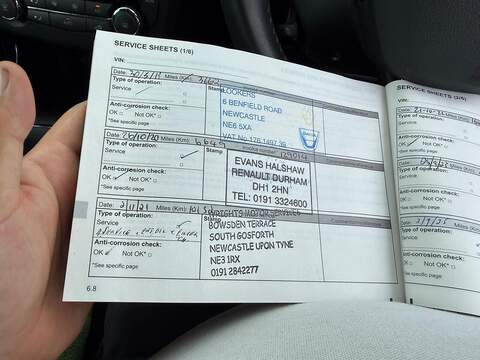 SERVICE SHEETS (1/6)
VIN:
Date: 30/5/19 Miles (Km):
Type of operation: Stamp
Service
Anti-corrosion check:
OK Not OK*
*See specific page
LOOKERS
6 BENFIELD ROAD
NEWCASTLE
NE6 5XA
VAT No 176 1497 39
Date: 26/10/20 Miles (Km): 6645
Type of operation: Stamp
Service ✓
Anti-corrosion check:
OK ✓ Not OK*
*See specific page
EVANS HALSHAW
RENAULT DURHAM
DH1 2HN
TEL: 0191 3324600
Date: 2/11/21 Miles (Km):
Type of operation: Stamp
Service
Anti-corrosion check:
OK Not OK*
*See specific page
WRIGHTS MOTOR SERVICES
BOWSDEN TERRACE
SOUTH GOSFORTH
NEWCASTLE UPON TYNE
NE3 1RX
0191 2842277
6.8
SERVICE SHEETS (2/6)
VIN:
Date:
Type of operation:
Service
Anti-corrosion check:
OK Not OK*
*See specific page
Date:
Type of operation:
Service
Anti-corrosion check:
OK Not OK*
*See specific page
Date:
Type of operation:
Service
Anti-corrosion check:
OK Not OK*
*See specific page